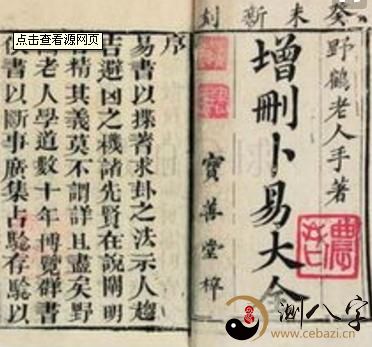 点击查看源网页
癸未新刻
野鶴老人手著
增删卜易大全
寶善堂梓
序
易書以揲蓍求卦之法示人趨
吉避凶之機諸先賢在說闡明
者精其義莫不謂詳且盡矣野
老人學道數十年博覽群書
書以斷事廣集占驗存驗以
測八字
www.cebazi.cn